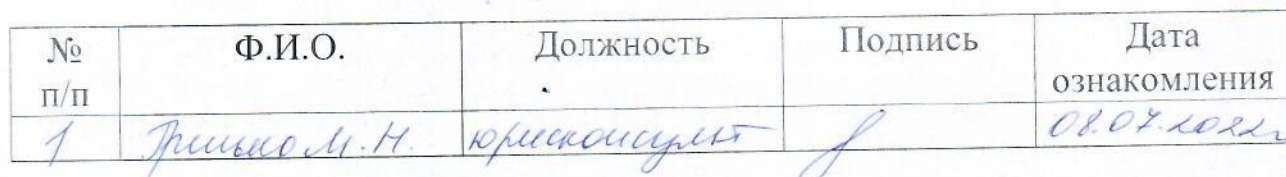 № п/п Ф.И.О. Должность Подпись Дата ознакомления
1 Гринько М.Н. юрисконсульт 08.07.2022г